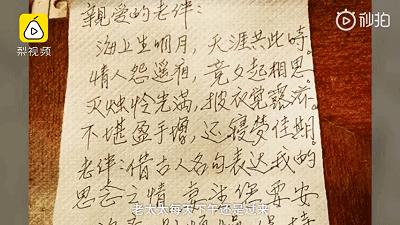 梨视频
秒拍
親爱的老伴：
海上生明月，天涯共此時。
情人怨遥夜，竟夕起相思。
灭烛怜光满，披衣觉露滋。
不堪盈手增，还寝梦佳期。
老伴：借古人名句表达我的
思念之情 要安
老太太每天下午还是过来